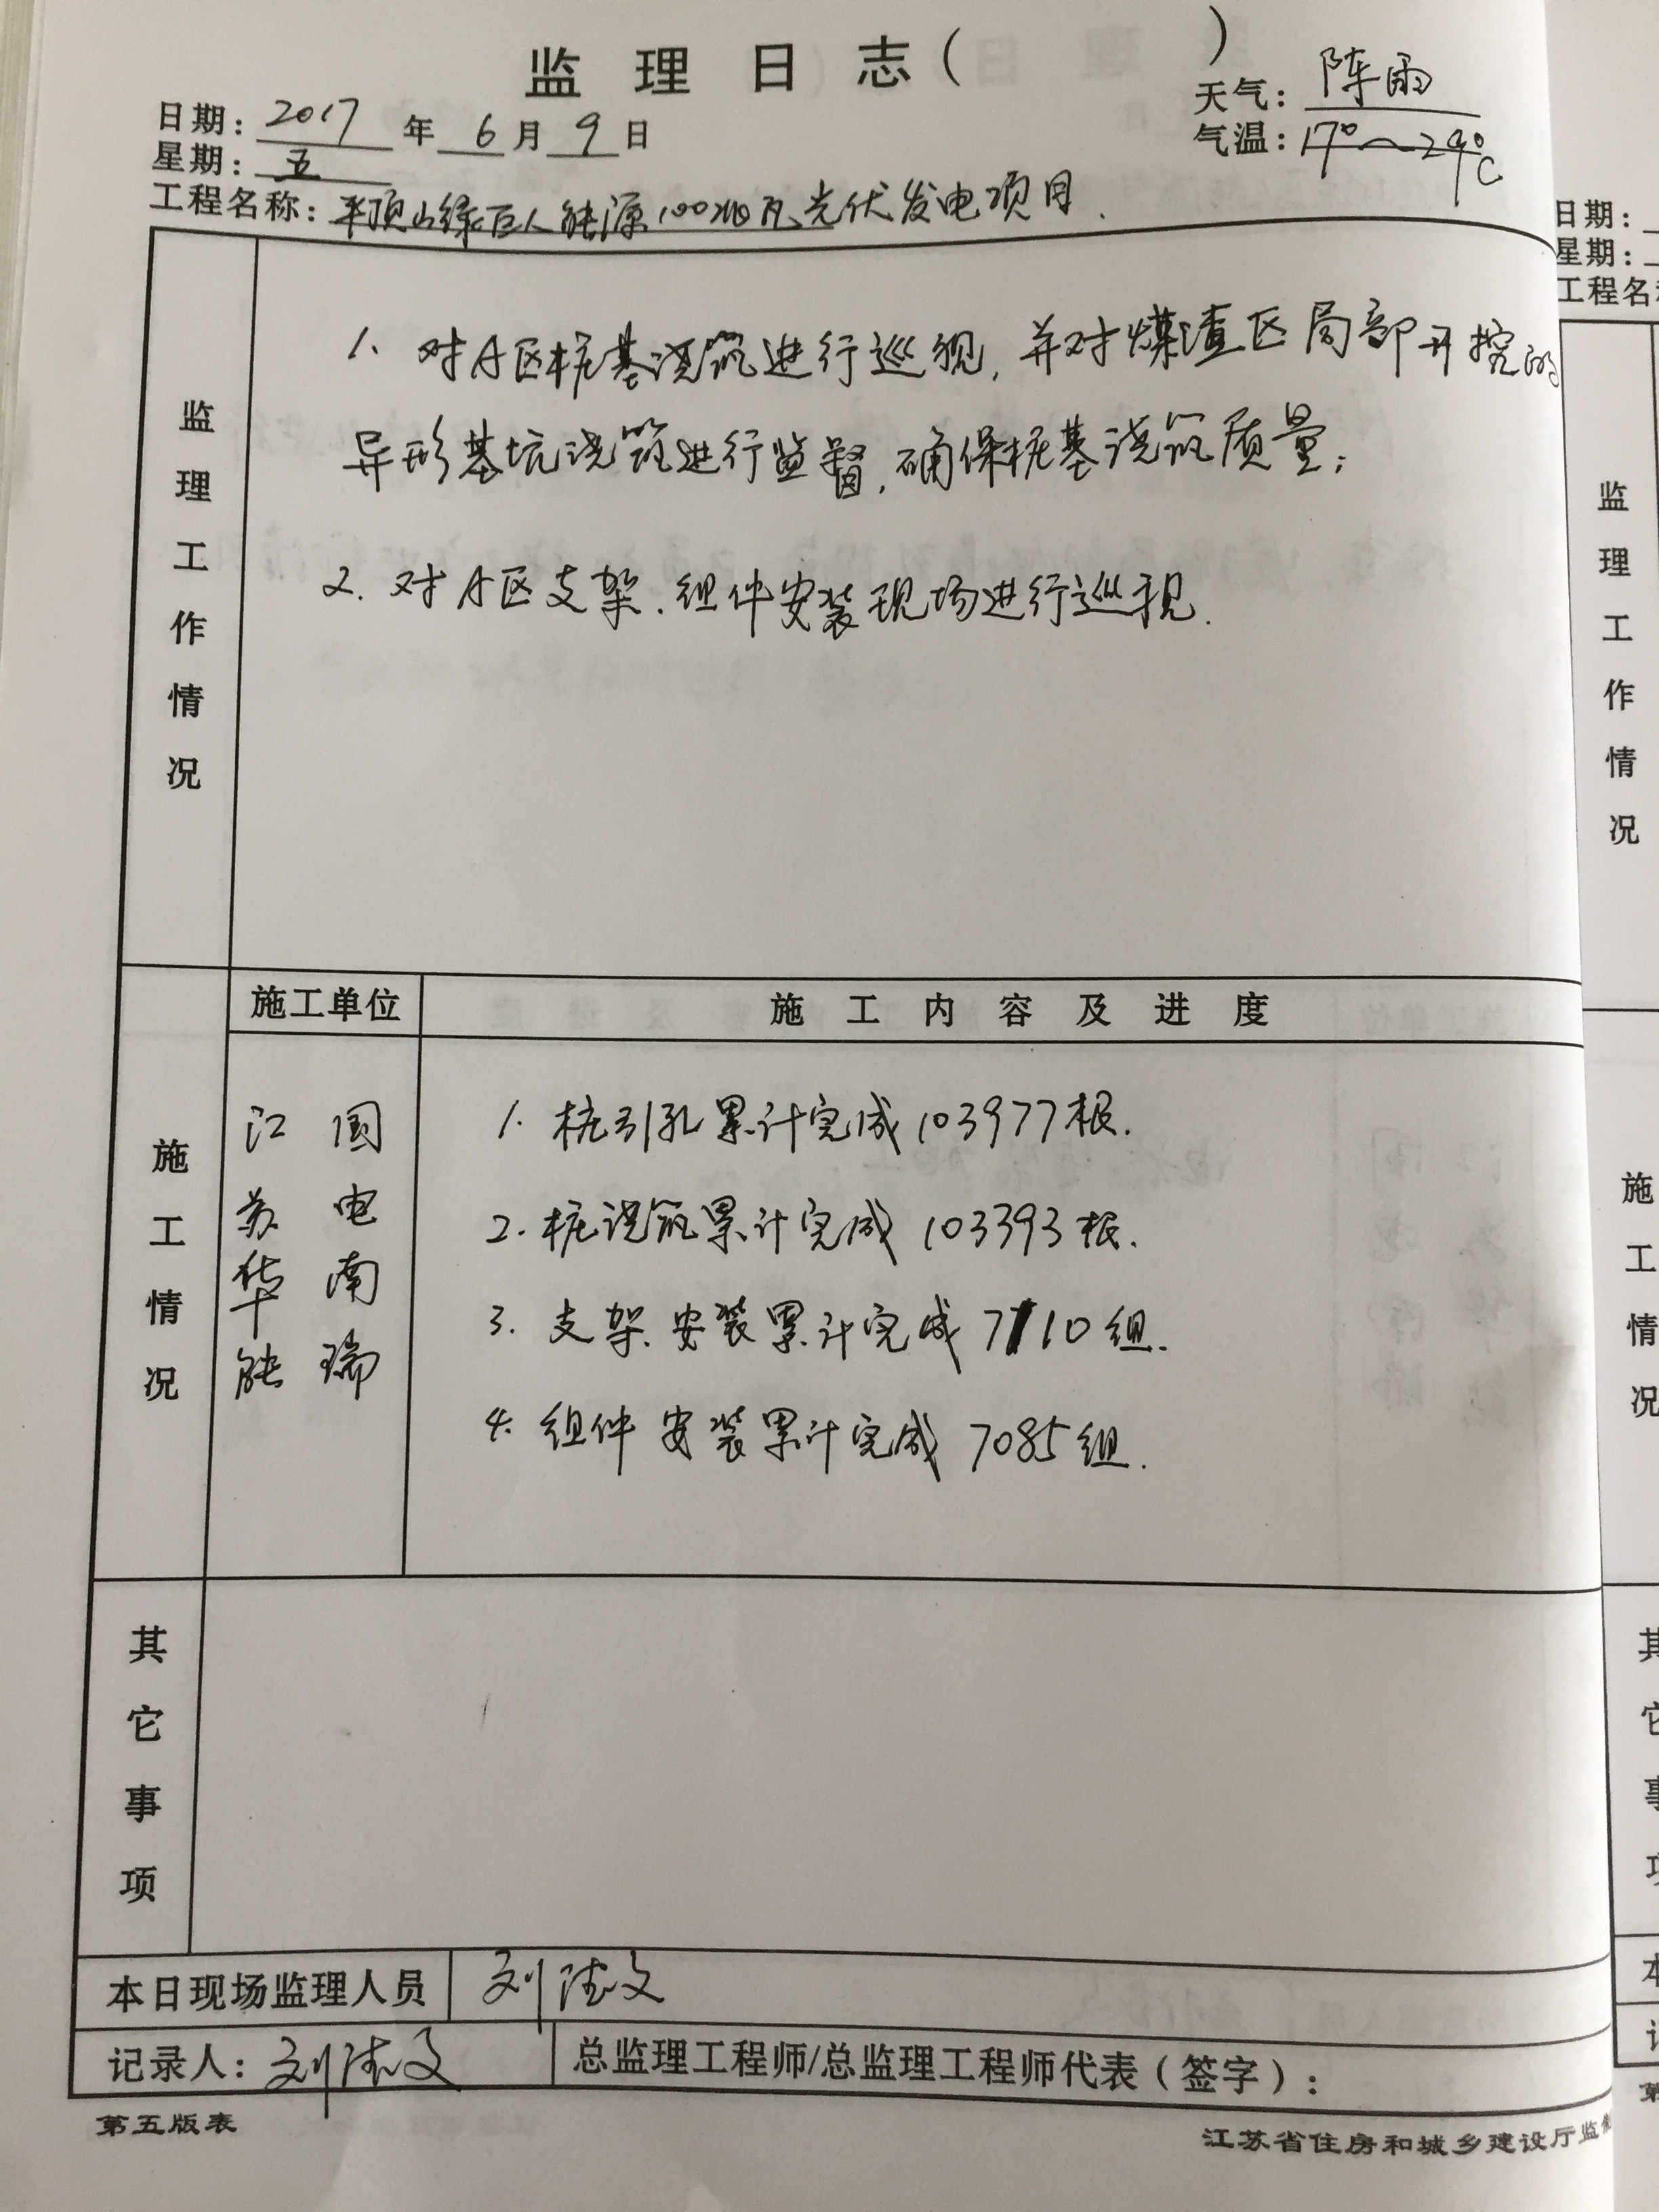 监理日志( )
日期: 2017 年 6 月 9 日
天气: 阵雨
星期: 五
气温: 17°~29℃
工程名称: 平顶山绿巨人能源100兆瓦光伏发电项目.
监理工作情况
1. 对A区桩基浇筑进行巡视, 并对煤渣区局部开挖的
异形基坑浇筑进行监督, 确保桩基浇筑质量;
2. 对A区支架.组件安装现场进行巡视.
施工单位
施工内容及进度
施工情况
江苏华能
国电南瑞
1. 桩引孔累计完成103977根.
2. 桩浇筑累计完成103393根.
3. 支架.安装累计完成7110组.
4. 组件安装累计完成7085组.
其它事项
本日现场监理人员 刘
记录人: 刘
总监理工程师/总监理工程师代表(签字):
第五版表
江苏省住房和城乡建设厅监
日期:
星期:
工程名
监理工作情况
施工情况